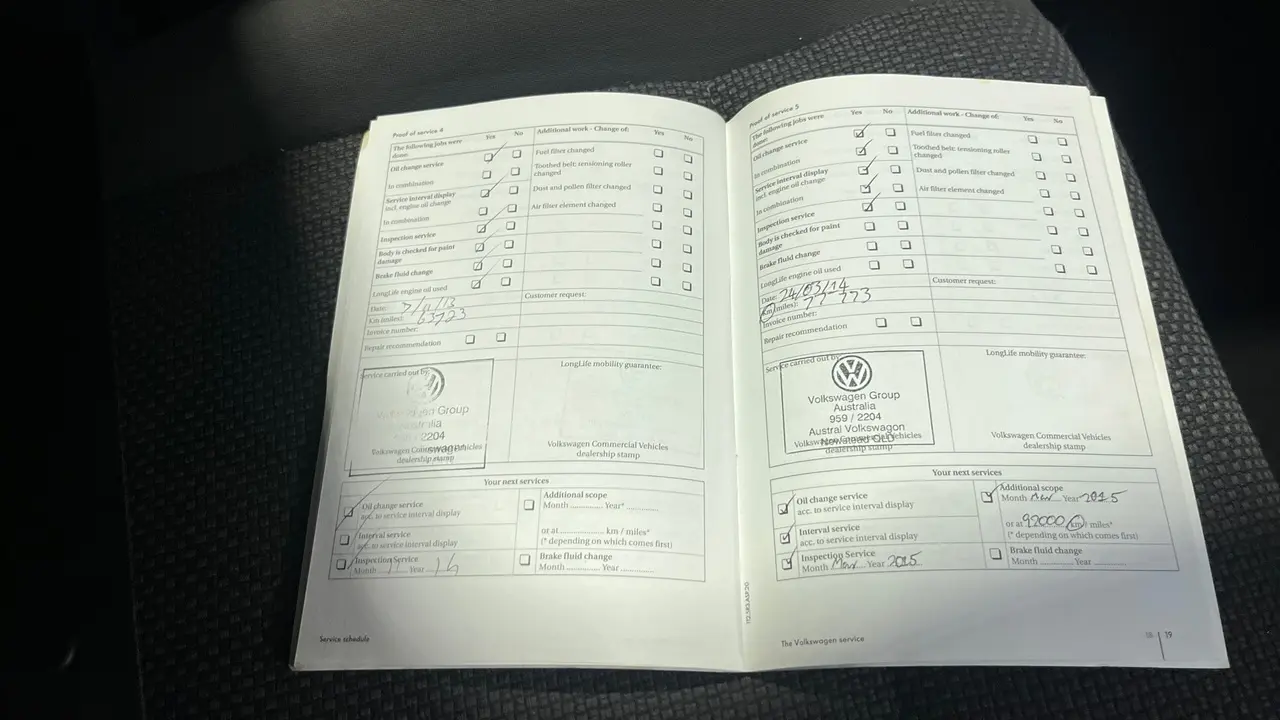 Proof of service 4
The following jobs were done: Yes No Additional work - Change of: Yes No
Oil change service Fuel filter changed
In combination Toothed belt: tensioning roller changed
Service interval display incl. engine oil change Dust and pollen filter changed
In combination Air filter element changed
Inspection service
Body is checked for paint damage
Brake fluid change
LongLife engine oil used
Date: 7/11/13 Customer request:
Km (miles): 63723
Invoice number:
Repair recommendation
Service carried out by: LongLife mobility guarantee:
Volkswagen Group
Australia
2204
Volkswagen Commercial Vehicles Volkswagen Commercial Vehicles
dealership stamp dealership stamp
Your next services
Oil change service Additional scope
acc. to service interval display Month Year*
Interval service or at km / miles*
acc. to service interval display (* depending on which comes first)
Inspection Service Brake fluid change
Month 11 Year Month Year
Service schedule
Proof of service 5
The following jobs were done: Yes No Additional work - Change of: Yes No
Oil change service Fuel filter changed
In combination Toothed belt: tensioning roller changed
Service interval display incl. engine oil change Dust and pollen filter changed
In combination Air filter element changed
Inspection service
Body is checked for paint damage
Brake fluid change
LongLife engine oil used
Date: 24/03/14 Customer request:
Km (miles): 77773
Invoice number:
Repair recommendation
Service carried out by: LongLife mobility guarantee:
Volkswagen Group
Australia
959 / 2204
Austral Volkswagen
Newstead QLD
Volkswagen Commercial Vehicles Volkswagen Commercial Vehicles
dealership stamp dealership stamp
Your next services
Oil change service Additional scope
acc. to service interval display Month Mar Year 2015
Interval service or at 92000 km / miles*
acc. to service interval display (* depending on which comes first)
Inspection Service Brake fluid change
Month Mar Year 2015 Month Year
The Volkswagen service 19